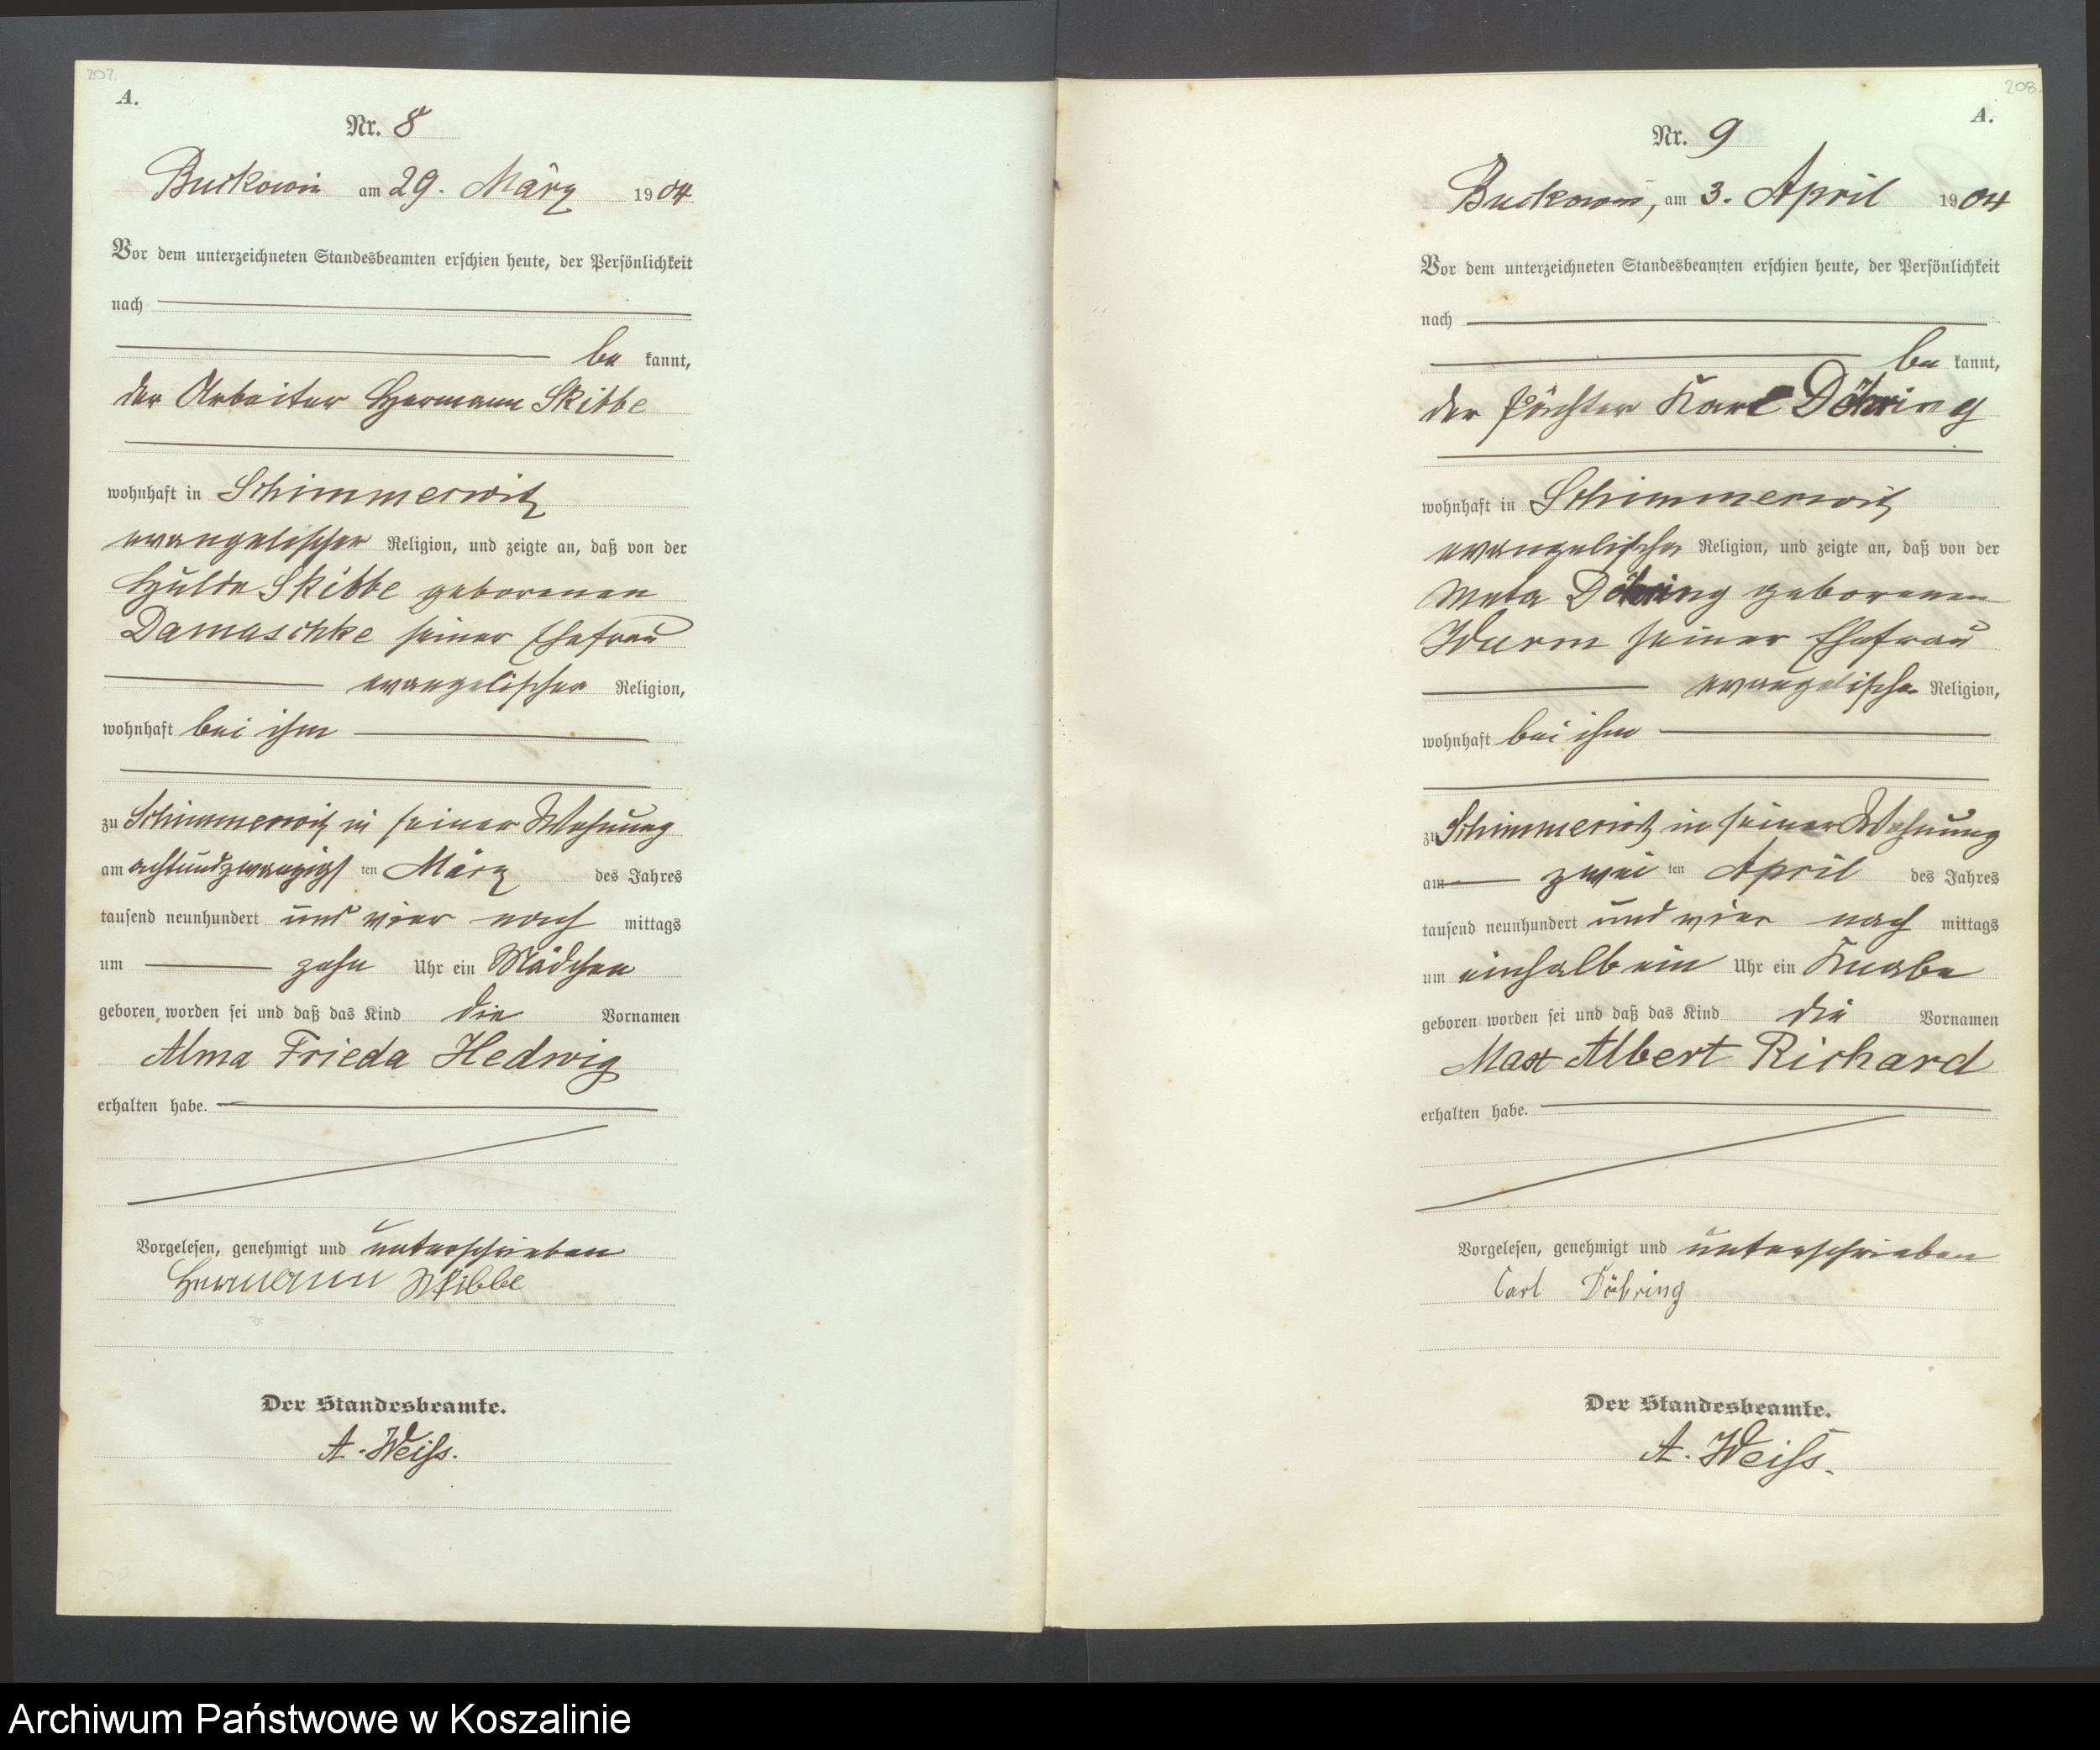 207.
A.
Nr. 8
Buckowin am 29. März 1904
Vor dem unterzeichneten Standesbeamten erschien heute, der Persönlichkeit
nach
be kannt,
der Arbeiter Hermann Skibbe
wohnhaft in Schimmerwitz
evangelischer Religion, und zeigte an, daß von der
Hulda Skibbe geborenen
Damaschke seiner Ehefrau
evangelischer Religion,
wohnhaft bei ihm
zu Schimmerwitz in seiner Wohnung
am achtundzwanzigs ten März des Jahres
tausend neunhundert und vier nach mittags
um zehn Uhr ein Mädchen
geboren worden sei und daß das Kind die Vornamen
Alma Frieda Hedwig
erhalten habe.
Vorgelesen, genehmigt und unterschrieben
Hermann Skibbe
Der Standesbeamte.
A. Weiss.
208.
A.
Nr. 9
Buckowin, am 3. April 1904
Vor dem unterzeichneten Standesbeamten erschien heute, der Persönlichkeit
nach
be kannt,
der Pächter Karl Döhring
wohnhaft in Schimmerwitz
evangelischer Religion, und zeigte an, daß von der
Meta Döhring geborenen
Wurm seiner Ehefrau
evangelischer Religion,
wohnhaft bei ihm
zu Schimmerwitz in seiner Wohnung
am zwei ten April des Jahres
tausend neunhundert und vier nach mittags
um einhalb ein Uhr ein Knabe
geboren worden sei und daß das Kind die Vornamen
Max Albert Richard
erhalten habe.
Vorgelesen, genehmigt und unterschrieben
Carl Döhring
Der Standesbeamte.
A. Weiss.
Archiwum Państwowe w Koszalinie